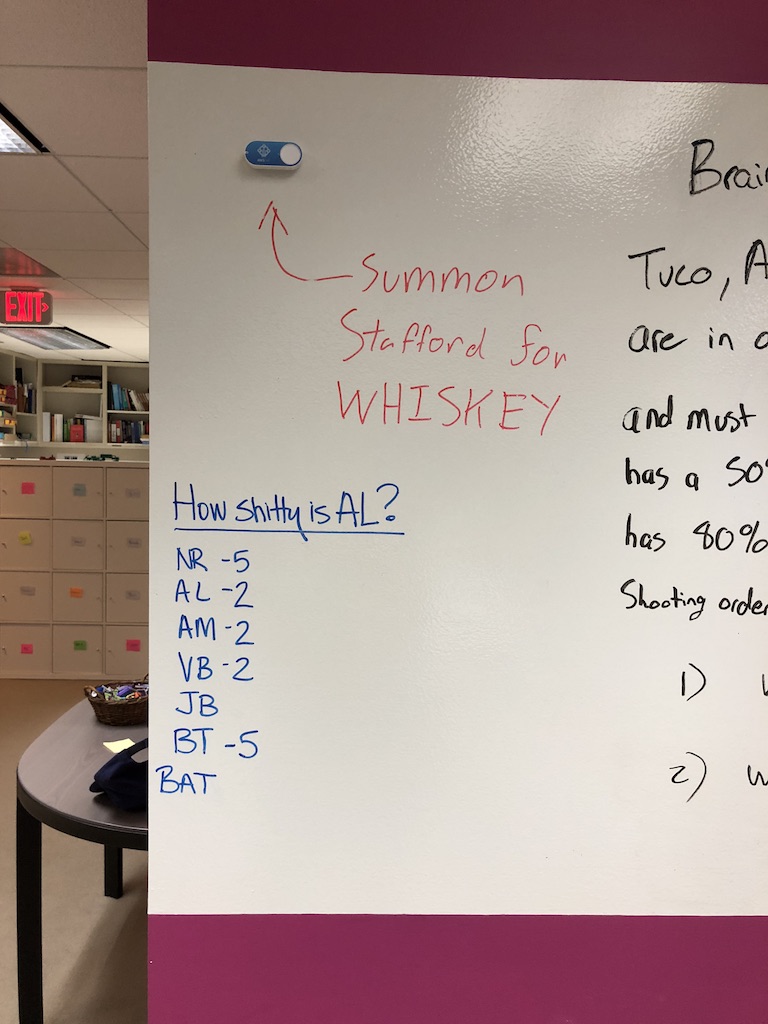 EXIT
Summon
Stafford for
WHISKEY
How shitty is AL?
NR -5
AL -2
AM -2
VB -2
JB
BT -5
BAT
Tuco,
are in
and must
has a 50%
has 80%
Shooting order
1)
2)